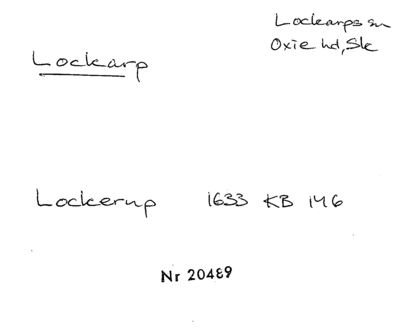 Lockarps sn
Oxie hd, Sk
Lockarp
Lockerup 1633 KB 146
Nr 20489